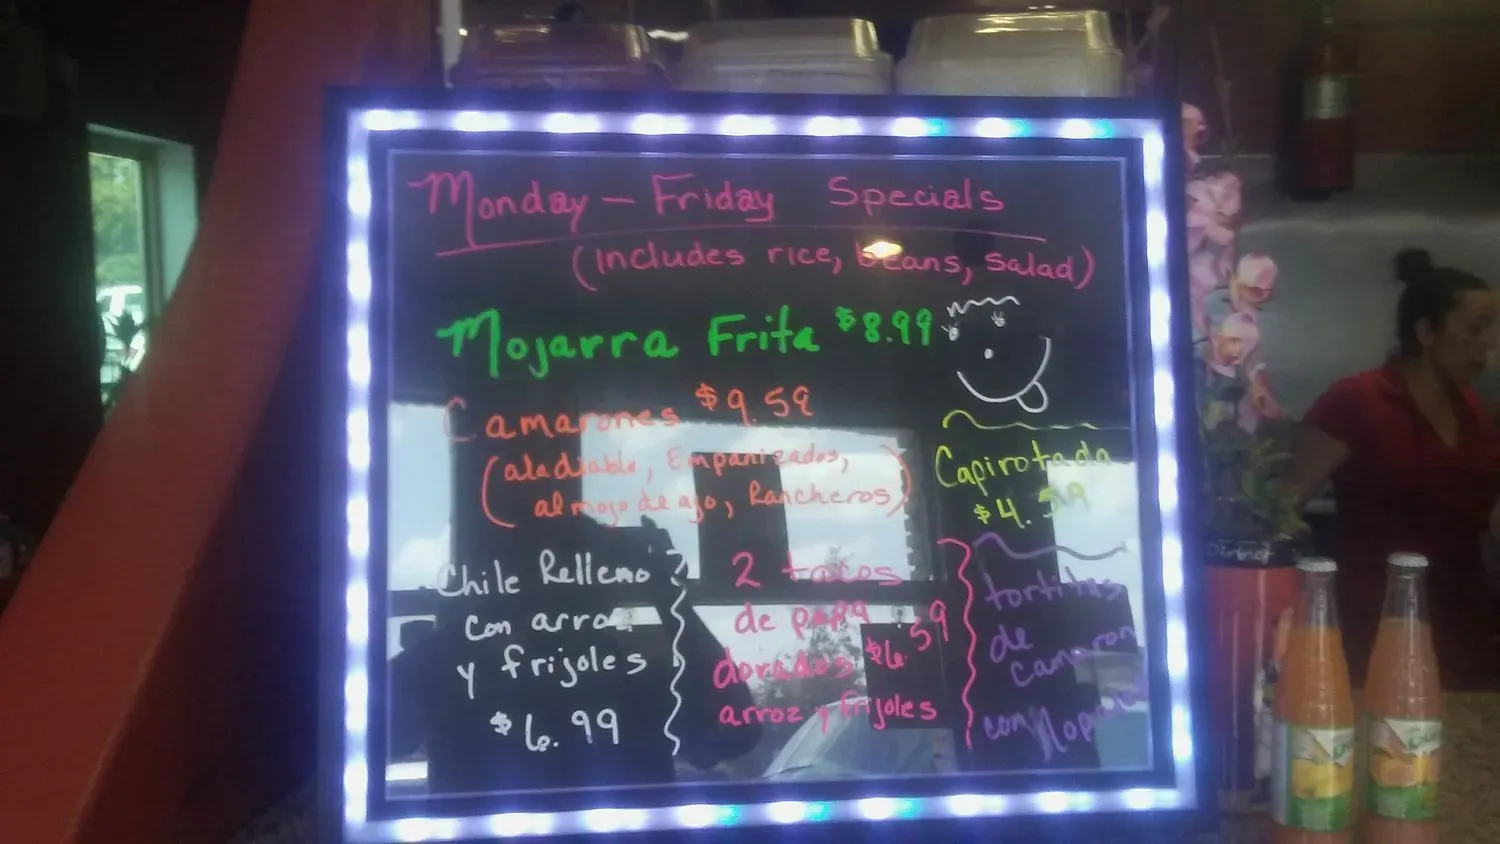 Monday - Friday Specials
(includes rice, beans, salad)
Mojarra Frita $8.99
Camarones $9.59
(aladiabla, Empanizados,
al mojo de ajo, Rancheros)
Capirotada
$4.59
Chile Relleno
con arroz
y frijoles
$6.99
2 tacos
de papa
dorados $6.59
arroz y frijoles
tortitas
de
camaron
con
Dinner